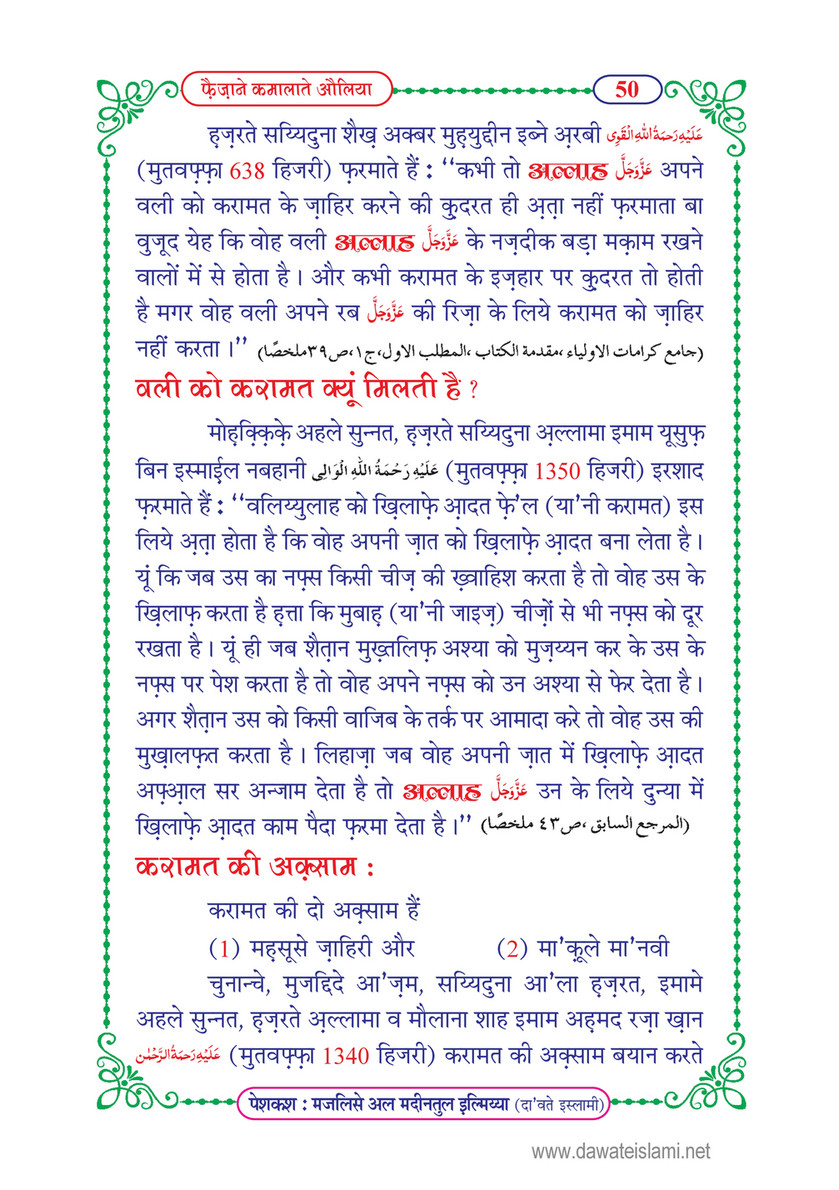 फ़ैज़ाने कमालाते औलिया
50
हज़रते सय्यिदुना शैख़ अक्बर मुह़युद्दीन इब्ने अ़रबी عَلَيْهِ رَحْمَةُ اللهِ الْقَوِى
(मुतवफ़्फ़ा 638 हिजरी) फ़रमाते हैं : ‘‘कभी तो अल्लाह عَزَّوَجَلَّ अपने
वली को करामत के ज़ाहिर करने की क़ुदरत ही अ़त़ा नहीं फ़रमाता बा
वुजूद येह कि वोह वली अल्लाह عَزَّوَجَلَّ के नज़दीक बड़ा मक़ाम रखने
वालों में से होता है । और कभी करामत के इज़हार पर क़ुदरत तो होती
है मगर वोह वली अपने रब عَزَّوَجَلَّ की रिज़ा के लिये करामत को ज़ाहिर
नहीं करता ।’’ (جامع كرامات الاولياء ،مقدمة الكتاب ،المطلب الاول،ج١،ص٣٩ملخصًا)
वली को करामत क्यूं मिलती है ?
मोह़क़्क़िक़े अहले सुन्नत, हज़रते सय्यिदुना अ़ल्लामा इमाम यूसुफ़
बिन इस्माईल नबहानी عَلَيْهِ رَحْمَةُ اللهِ الْوَالِى (मुतवफ़्फ़ा 1350 हिजरी) इरशाद
फ़रमाते हैं : ‘‘वलिय्युलाह को ख़िलाफ़े आ़दत फ़े’ल (या’नी करामत) इस
लिये अ़त़ा होता है कि वोह अपनी ज़ात को ख़िलाफ़े आ़दत बना लेता है ।
यूं कि जब उस का नफ़्स किसी चीज़ की ख़्वाहिश करता है तो वोह उस के
ख़िलाफ़ करता है ह़त्ता कि मुबाह़ (या’नी जाइज़) चीज़ों से भी नफ़्स को दूर
रखता है । यूं ही जब शैत़ान मुख़्तलिफ़ अश्या को मुज़य्यन कर के उस के
नफ़्स पर पेश करता है तो वोह अपने नफ़्स को उन अश्या से फेर देता है ।
अगर शैत़ान उस को किसी वाजिब के तर्क पर आमादा करे तो वोह उस की
मुख़ालफ़त करता है । लिहाज़ा जब वोह अपनी ज़ात में ख़िलाफ़े आ़दत
अफ़्आ़ल सर अन्जाम देता है तो अल्लाह عَزَّوَجَلَّ उन के लिये दुन्या में
ख़िलाफ़े आ़दत काम पैदा फ़रमा देता है ।’’ (المرجع السابق ،ص٤٣ ملخصًا)
करामत की अक़्साम :
करामत की दो अक़्साम हैं
(1) मह़सूसे ज़ाहिरी और (2) मा’क़ूले मा’नवी
चुनान्चे, मुजद्दिदे आ’ज़म, सय्यिदुना आ’ला ह़ज़रत, इमामे
अहले सुन्नत, हज़रते अ़ल्लामा व मौलाना शाह इमाम अह़मद रज़ा ख़ान
عَلَيْهِ رَحْمَةُ الرَّحْمٰن (मुतवफ़्फ़ा 1340 हिजरी) करामत की अक़्साम बयान करते
पेशकश : मजलिसे अल मदीनतुल इल्मिय्या (दा’वते इस्लामी)
www.dawateislami.net